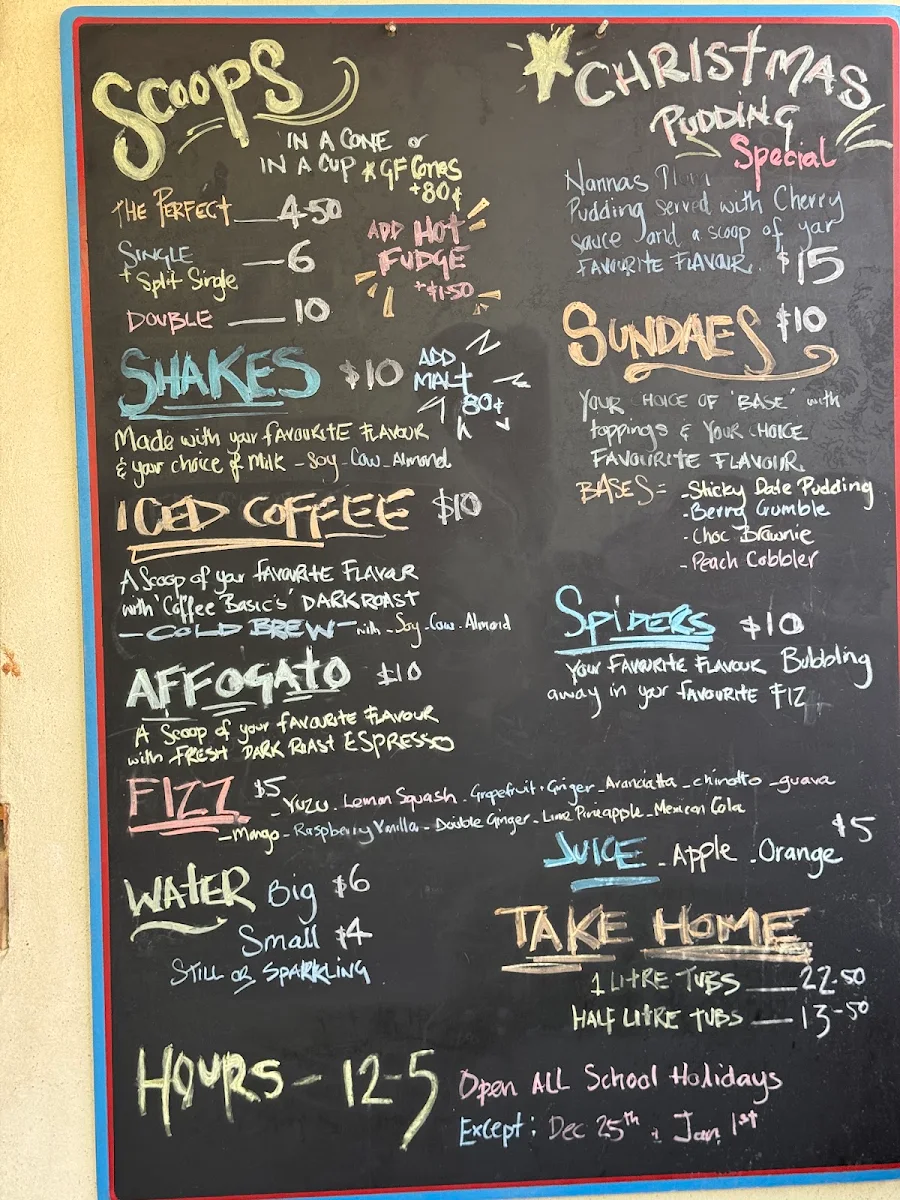 SCOOPS
IN A CONE or
IN A CUP * GF Cones
+80¢
THE PERFECT 4-50
SINGLE — 6
+ Split Single
DOUBLE — 10
ADD HOT
FUDGE
+$1-50
SHAKES $10
ADD
MALT
80¢
Made with your FAVOURITE FLAVOUR
& your choice of Milk - Soy - Cow - Almond
ICED COFFEE $10
A Scoop of your FAVOURITE FLAVOUR
with 'Coffee Basic's' DARK ROAST
- COLD BREW - with - Soy - Cow - Almond
AFFOGATO $10
A Scoop of your FAVOURITE FLAVOUR
with FRESH DARK ROAST ESPRESSO
CHRISTMAS
PUDDING
Special
Nannas
Pudding served with Cherry
sauce and a scoop of yar
FAVOURITE FLAVOUR. $15
SUNDAES $10
YOUR HOICE OF 'BASE' with
toppings & YOUR CHOICE
FAVOURITE FLAVOUR.
BASES = - Sticky Date Pudding
- Berry Crumble
- Choc Brownie
- Peach Cobbler
SPIDERS $10
YOUR FAVOURITE FLAVOUR Bubbling
away in your FAVOURITE FIZ
FIZZ $5 - YUZU - Lemon Squash - Grapefruit + Ginger - Aranciatta - chinotto - guava
- Mango - Raspberry Vanilla - Double Ginger - Lime Pineapple - Mexican Cola
JUICE - Apple - Orange $5
WATER Big $6
Small $4
STILL OR SPARKLING
TAKE HOME
1 LITRE TUBS — 22-50
HALF LITRE TUBS — 13-50
HOURS - 12-5
Open ALL School Holidays
Except: Dec 25th & Jan 1st